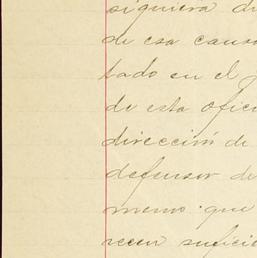 siquiera de
de esa causa
tado en el
de esta ofici
dirección de
defensor de
memo que
recen suficie